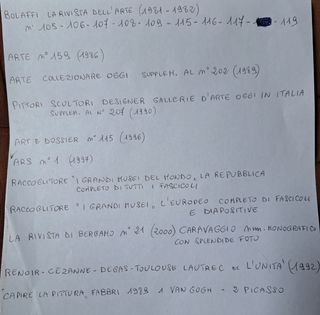 BOLAFFI LA RIVISTA DELL'ARTE (1981-1982)
n° 105-106-107-108-109-115-116-117- -119
ARTE n° 159 (1986)
ARTE COLLEZIONARE OGGI SUPPLEM. AL n° 202 (1989)
PITTORI SCULTORI DESIGNER GALLERIE D'ARTE OGGI IN ITALIA
SUPPLEM. AL N° 207 (1990)
ART E DOSSIER n° 115 (1996)
ARS n° 1 (1997)
RACCOGLITORE "I GRANDI MUSEI DEL MONDO" LA REPUBBLICA
COMPLETO DI TUTTI I FASCICOLI
RACCOGLITORE "I GRANDI MUSEI" L'EUROPEO COMPLETO DI FASCICOLI
E DIAPOSITIVE
LA RIVISTA DI BERGAMO n° 21 (2000) CARAVAGGIO MONOGRAFICO
CON SPLENDIDE FOTO
RENOIR-CEZANNE-DEGAS-TOULOUSE LAUTREC DE L'UNITA' (1992)
CAPIRE LA PITTURA FABBRI 1989 1 VAN GOGH - 2 PICASSO